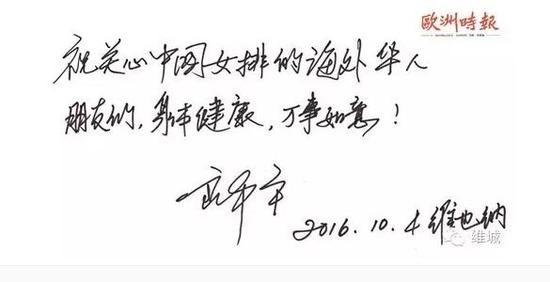 歐洲時報
祝关心中国女排的海外华人
朋友们，身体健康，万事如意！
2016.10.4 维也纳
维城